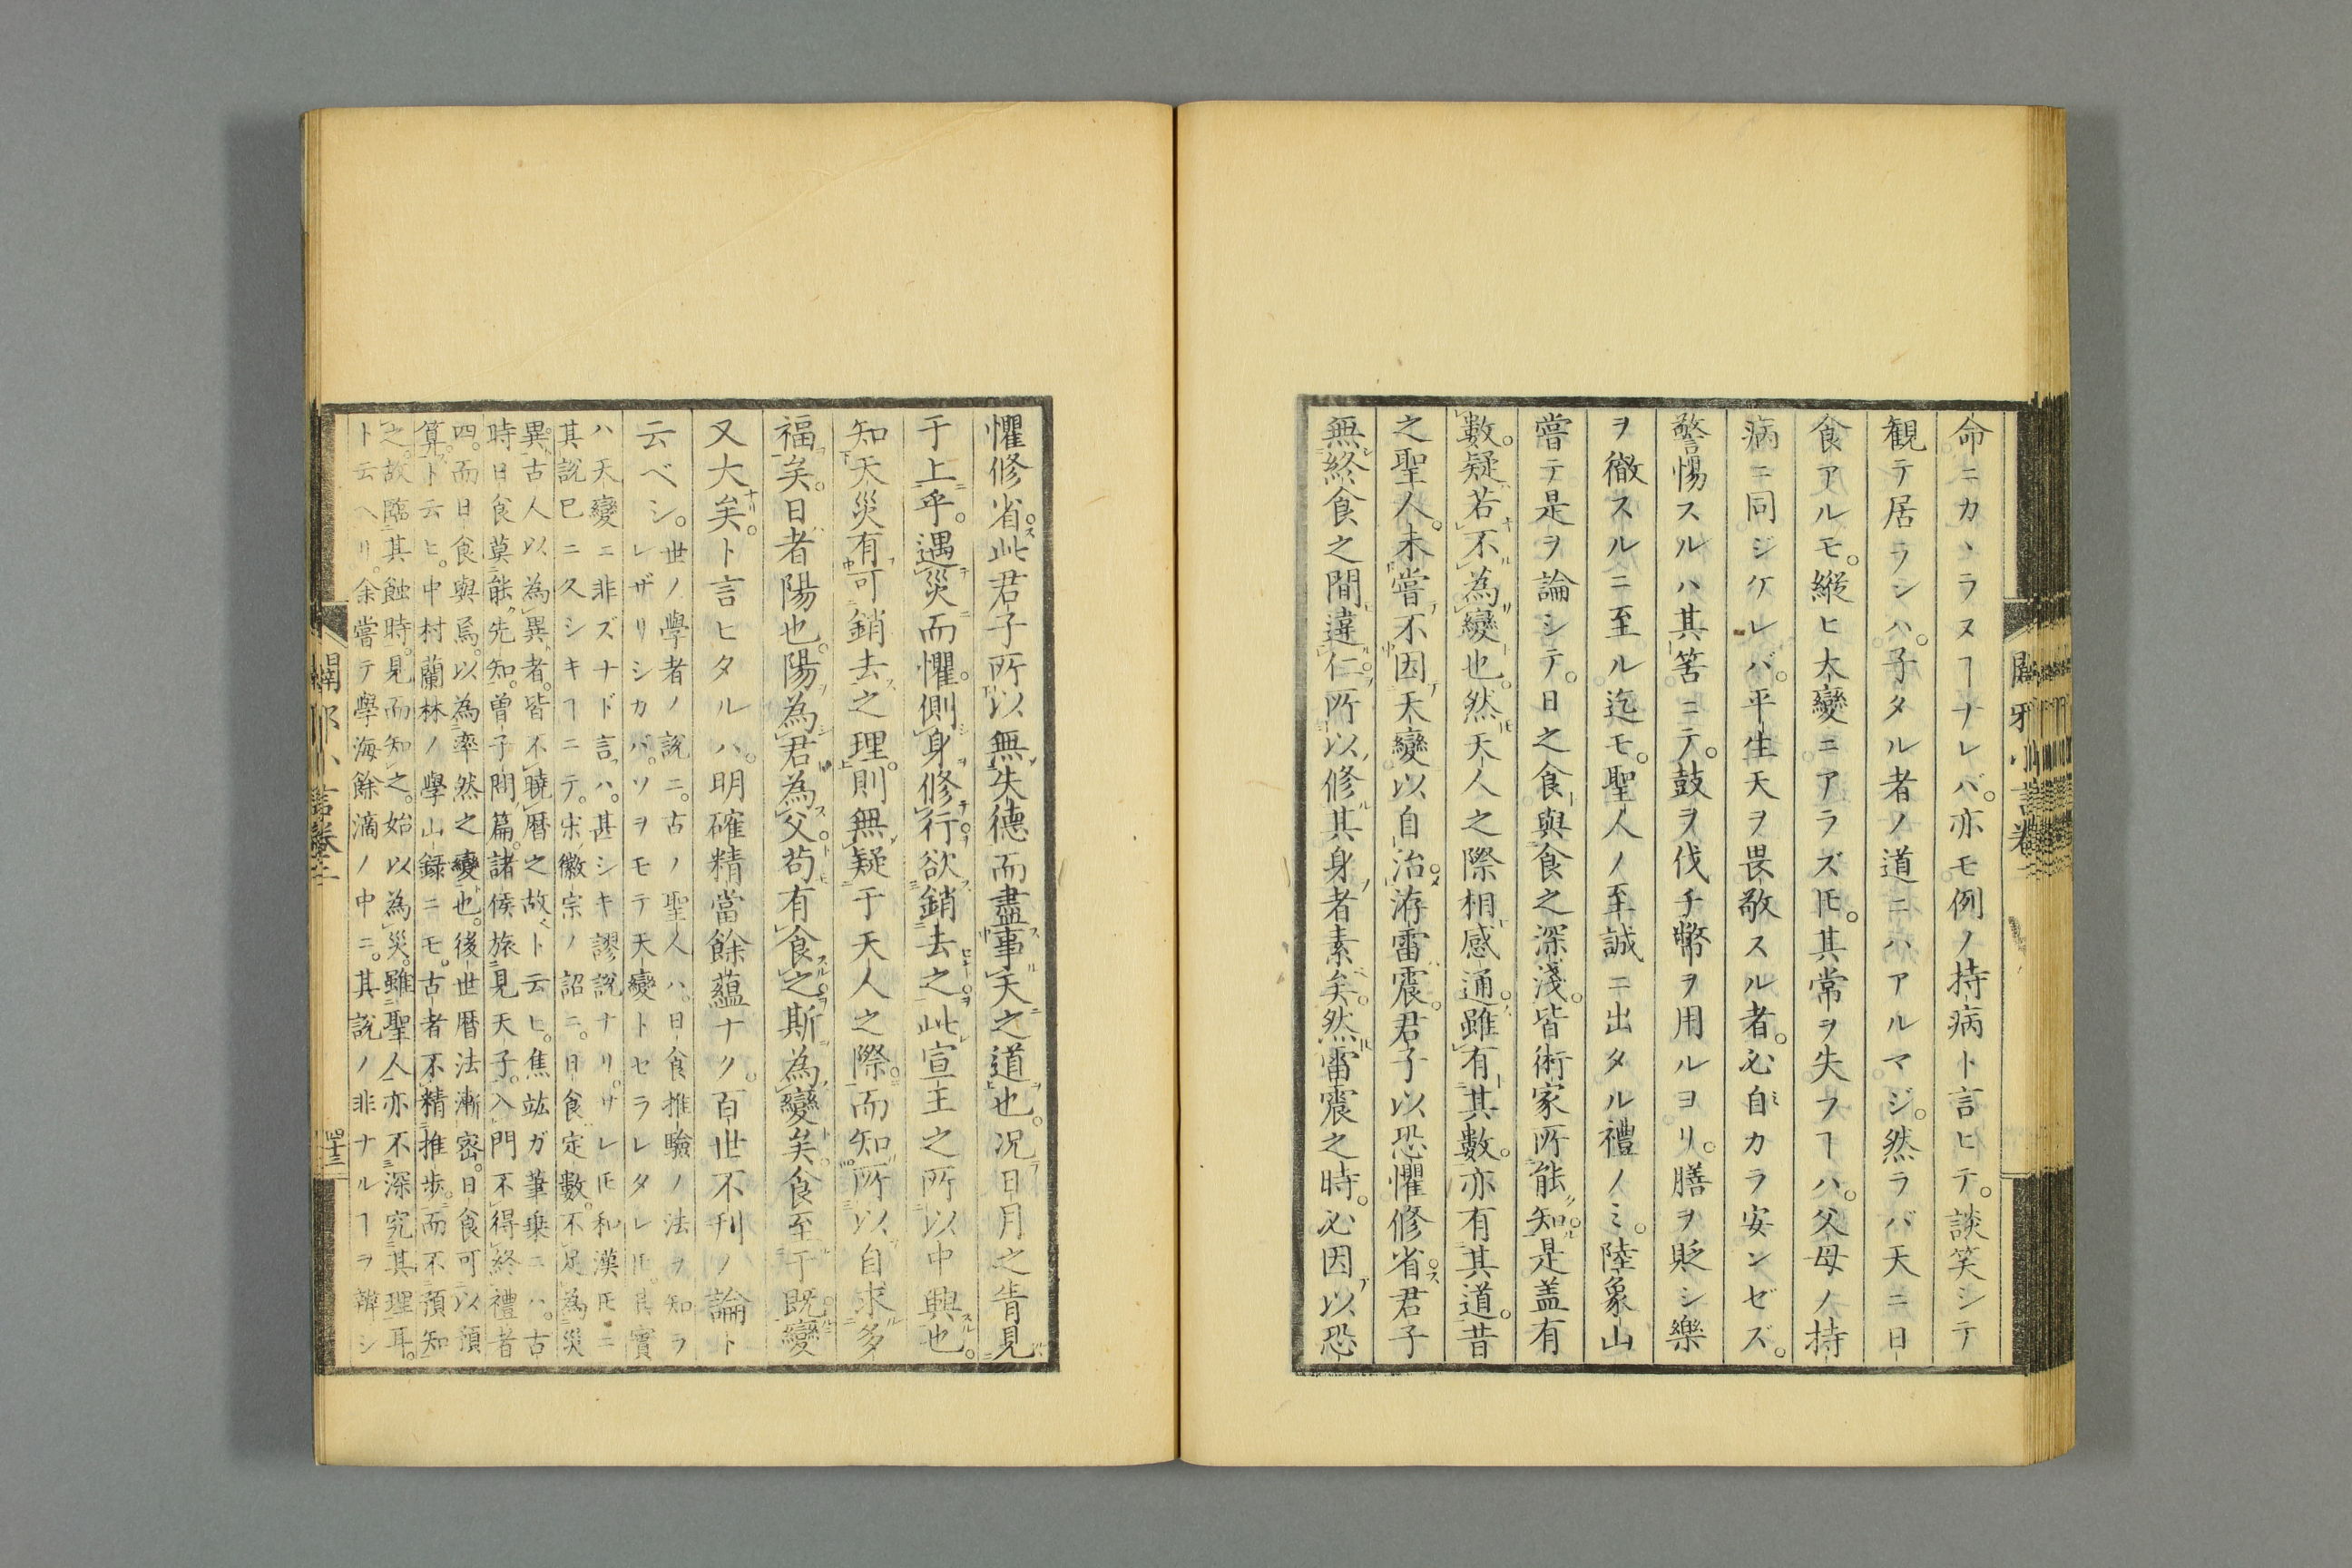 命ニカヽラヌヿナレバ。亦モ例ノ持病ト言ヒテ。談笑シテ
観テ居ラシハ。子タル者ノ道ニハアルマジ。然ラバ天ニ日
食アルモ。縦ヒ大變ニアラズ𪜈。其常ヲ失フヿハ。父母ノ持
病ニ同ジケレバ。平生天ヲ畏敬スル者。必自カラ安ンゼズ。
警惕スルハ其筈ニテ。鼓ヲ伐チ幣ヲ用ルヨリ。膳ヲ貶シ樂
ヲ徹スルニ至ル迄モ。聖人ノ至誠ニ出タル禮ノミ。陸象山
嘗テ是ヲ論シテ。日之食與食之深淺。皆術家所能知。是盖有
數。疑若不為變也。然天人之際相感通。雖有其數。亦有其道。昔
之聖人。未嘗不因天變以自治。洊雷震。君子以恐懼修省。君子
無終食之間違仁。所以修其身者素矣。然雷震之時。必因以恐
懼修省。此君子所以無失德而盡事天之道也。况日月之眚見
于上乎。遇災而懼。側身修行。欲銷去之。此宣王之所以中興也。
知天災有可銷去之理。則無疑于天人之際。而知所以自求多
福矣。日者陽也。陽為君為父。苟有食之。斯為變矣。食至于既。變
又大矣。ト言ヒタルハ。明確精當餘蘊ナク。百世不刊ノ論ト
云ベシ。世ノ學者ノ說ニ。古ノ聖人ハ。日食推驗ノ法ヲ知ラ
レザリシカバ。ソヲモテ天變トセラレタレ𪜈。其實
ハ天變ニ非ズナド言ハ。甚シキ謬說ナリ。サレ𪜈和漢𪜈ニ
其說已ニ久シキヿニテ。宋徽宗ノ詔ニ。日食定數。不足為災
異。古人以為異者。皆不曉曆之故。ト云ヒ。焦竑ガ筆乗ニハ。古
時日食莫能先知。曽子問篇。諸侯旅見天子。入門不得終禮者
四。而日食與焉。以為率然之變也。後世曆法漸密。日食可以預
算。ト云ヒ。中村蘭林ノ學山録ニモ。古者不精推步。而不預知
之。故臨其蝕時。見而知之。始以為災。雖聖人亦不深究其理耳。
ト云ヘリ。余嘗テ學海餘滴ノ中ニ。其說ノ非ナルヿヲ辯シ